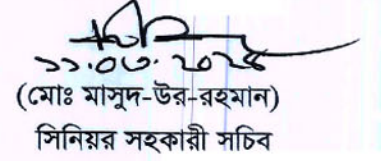 ১১.০৩.২০২৪
(মোঃ মাসুদ-উর-রহমান)
সিনিয়র সহকারী সচিব